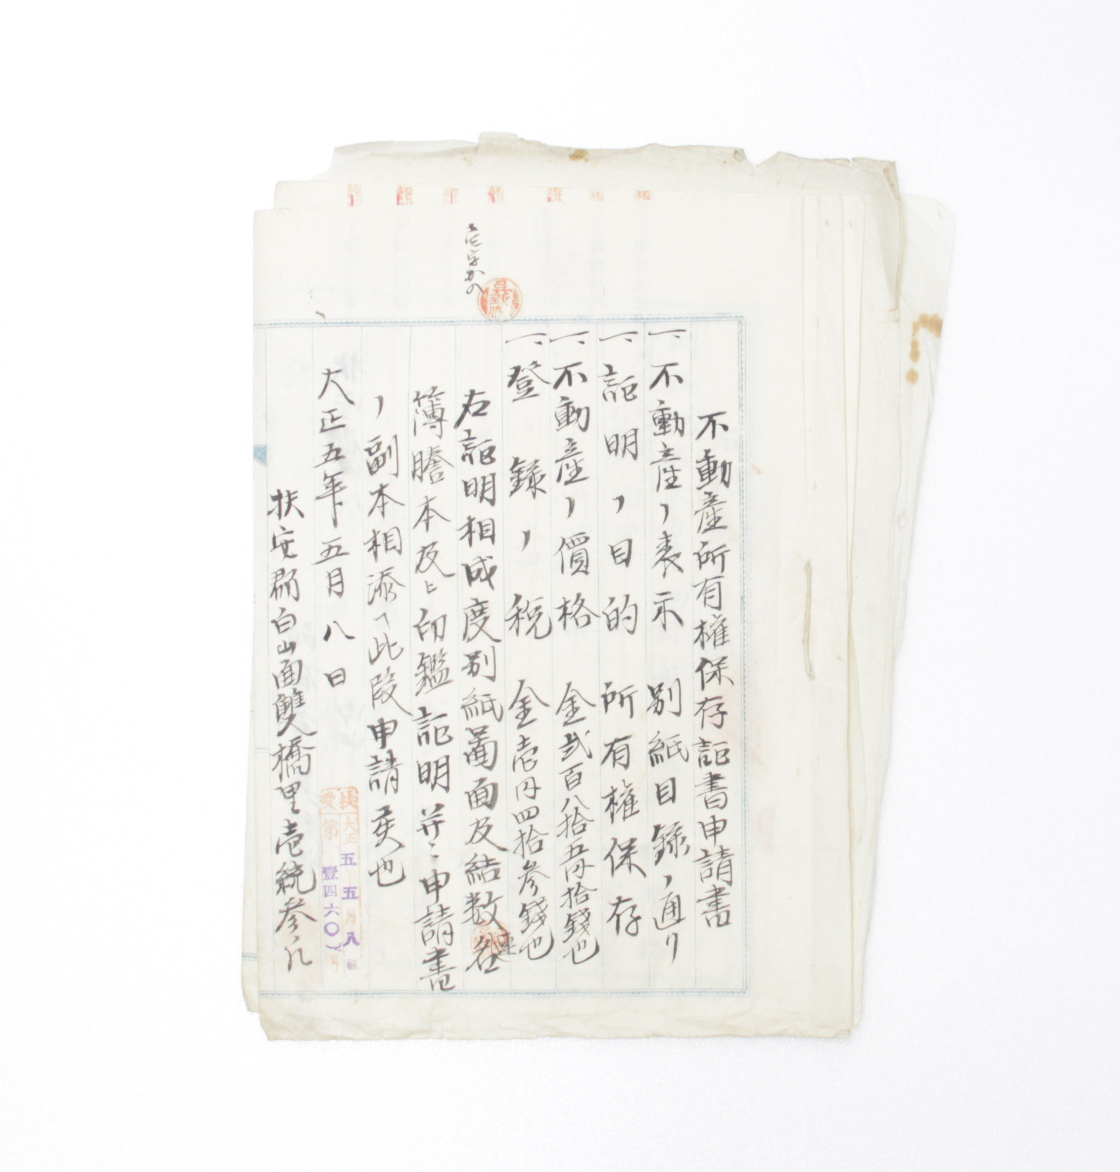 不動産所有權保存証書申請書
一、不動産ノ表示 別紙目錄ノ通リ
一、証明ノ目的 所有權保存
一、不動産ノ價格 金貳百八拾五円拾錢也
一、登錄ノ税 金壱円四拾参錢也
右証明相成度別紙圖面及結数連名
簿謄本及ヒ印鑑証明並ニ申請書
ノ副本相添ヘ此段申請候也
大正五年五月八日
扶安郡白山面雙橋里壱統参戸
大正五年五月八
第壹四六〇
壱字加入